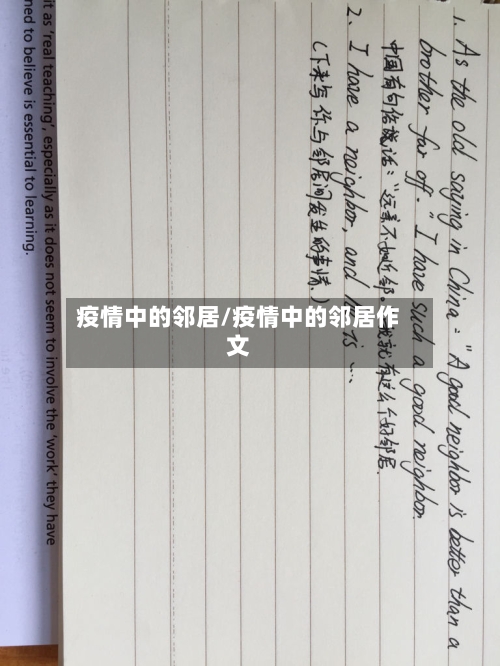 1. As the old saying in China: "A good neighbor is better than a
brother far off." I have such a good neighbor.
中国有句俗话说: "远亲不如近邻。 我就有这么个好邻居.
2. I have a neighbor, and
(下来写你与邻居间发生的事情.)
疫情中的邻居/疫情中的邻居作
文
it as 'real teaching', especially as it does not seem to involve the 'work' they have
ned to believe is essential to learning.